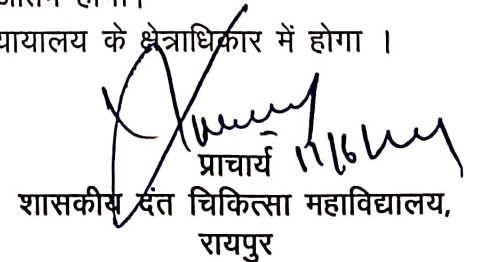 होगा।
यायालय के क्षेत्राधिकार में होगा ।
प्राचार्य
शासकीय दंत चिकित्सा महाविद्यालय,
रायपुर